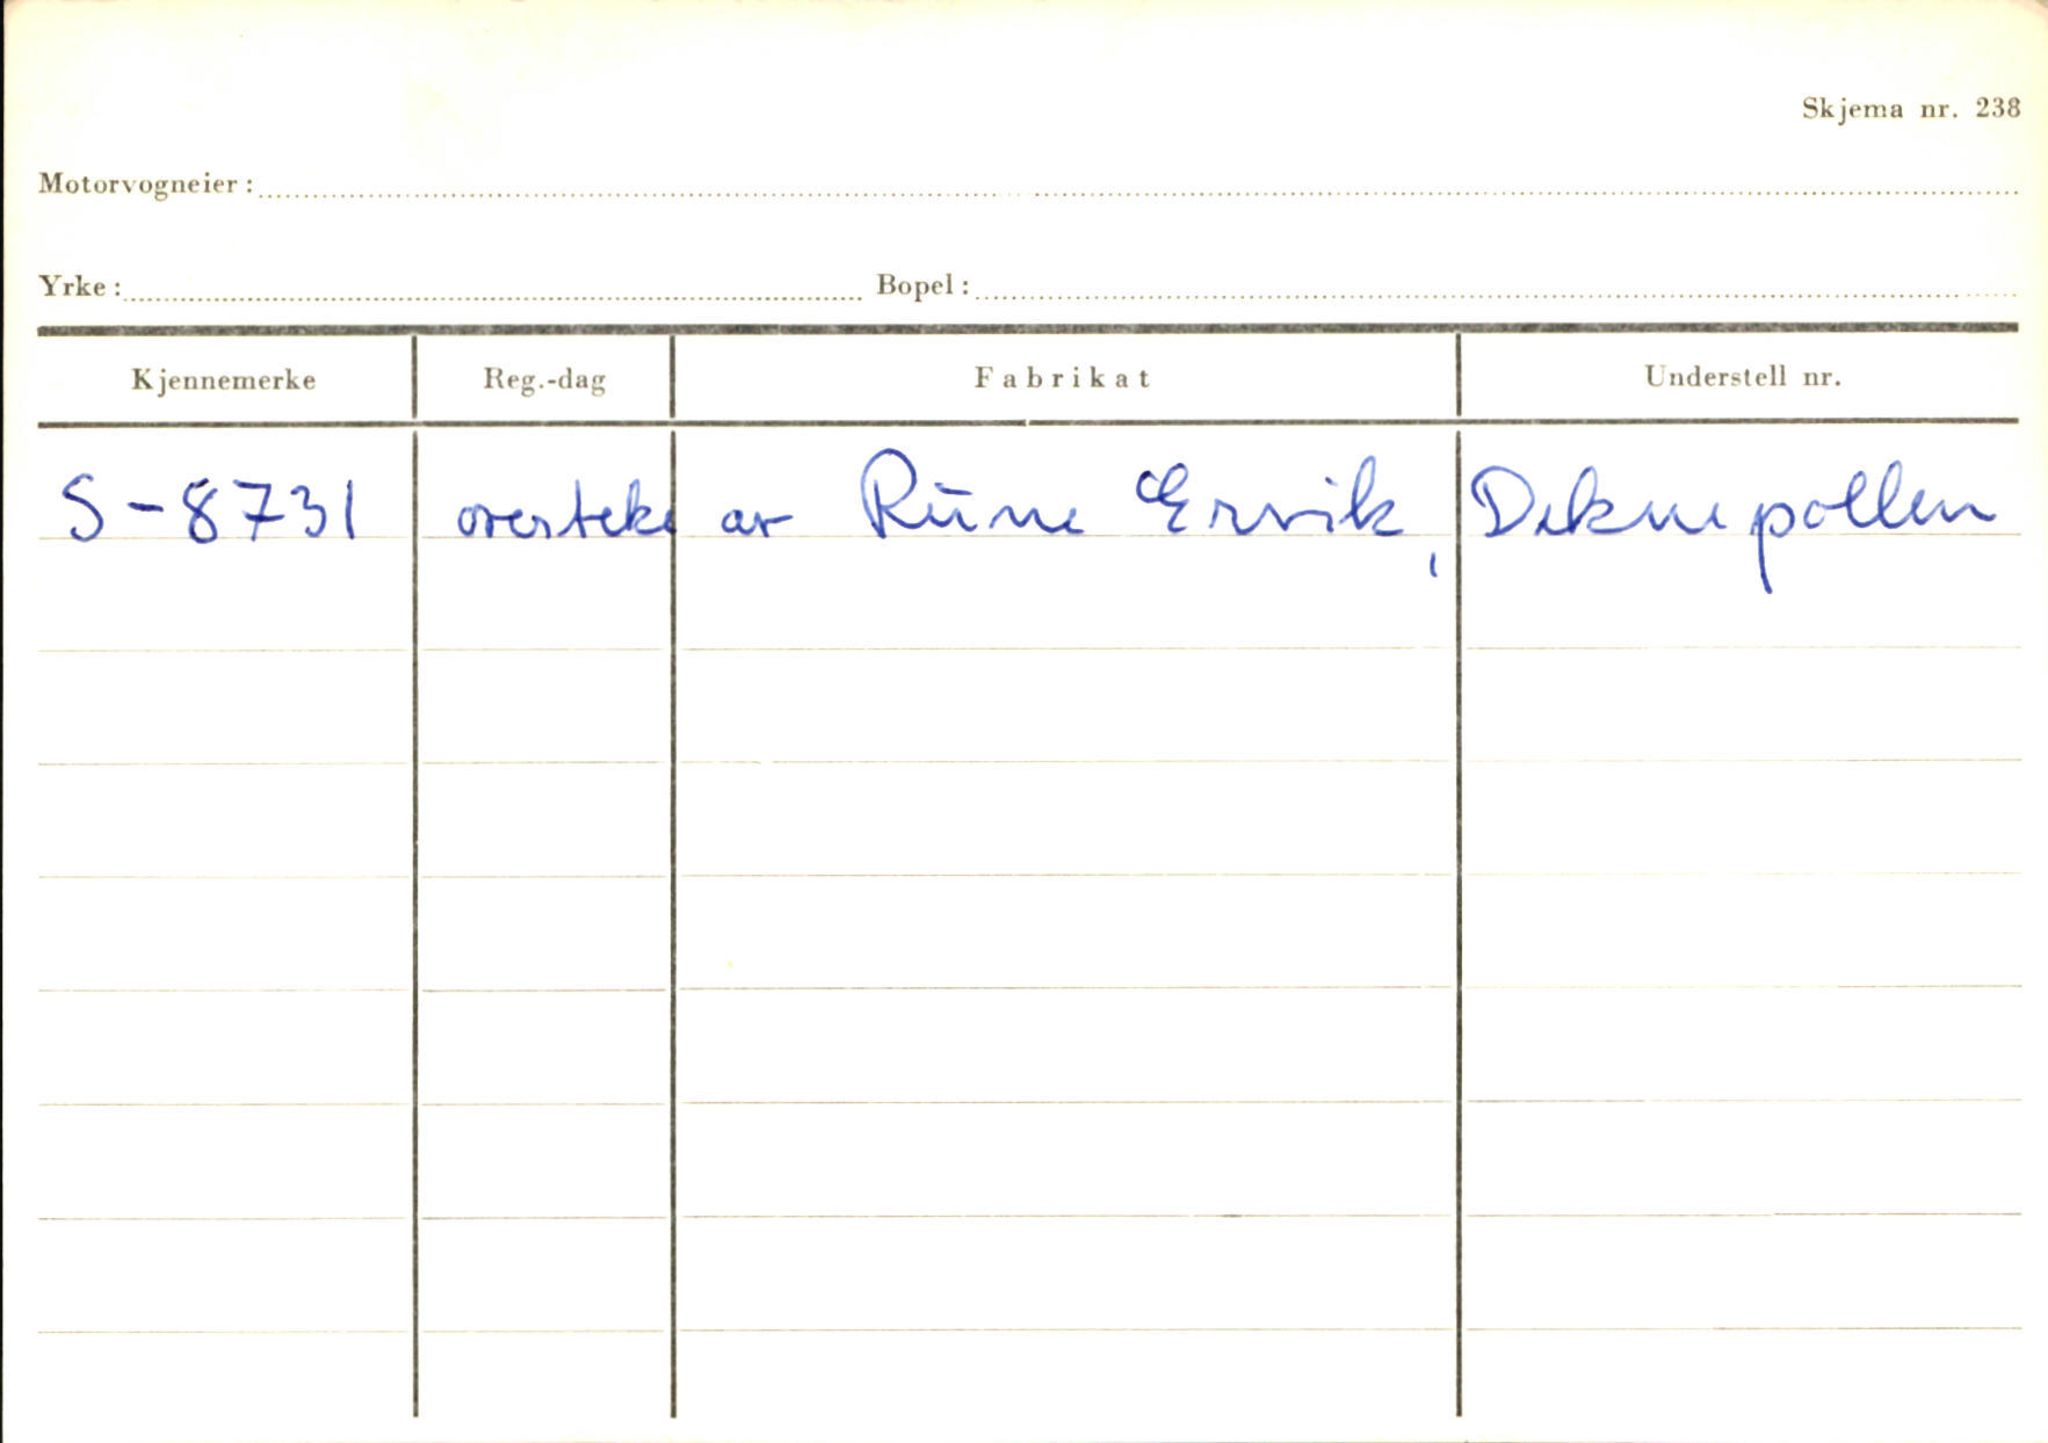 Skjema nr. 238
Motorvogneier:
Yrke: Bopel:
Kjennemerke Reg.-dag Fabrikat Understell nr.
S-8731 overteke av Rune Ervik, Deknepollen